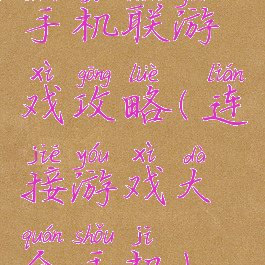 手机联游
xì gōng lüè lián
戏攻略(连
jiē yóu xì dà
接游戏大
quán shǒu jī
全手机)